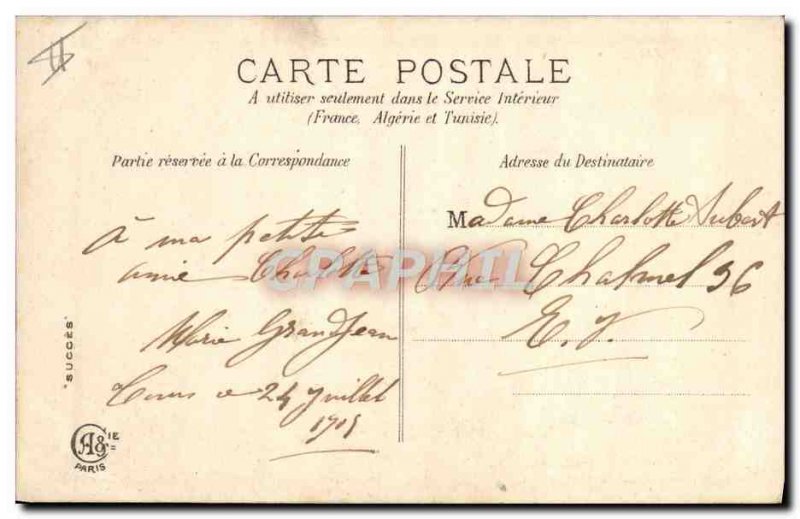 CARTE POSTALE
A utiliser seulement dans le Service Intérieur
(France, Algérie et Tunisie).
Partie réservée à la Correspondance
Adresse du Destinataire
à ma petite
amie Charlotte
Marie Grandjean
Tours le 24 Juillet
1905
Madame Charlotte
Rue Chalmel 36
E. V.
CPAPHIL
"SUCCÈS"
A&
CIE
PARIS